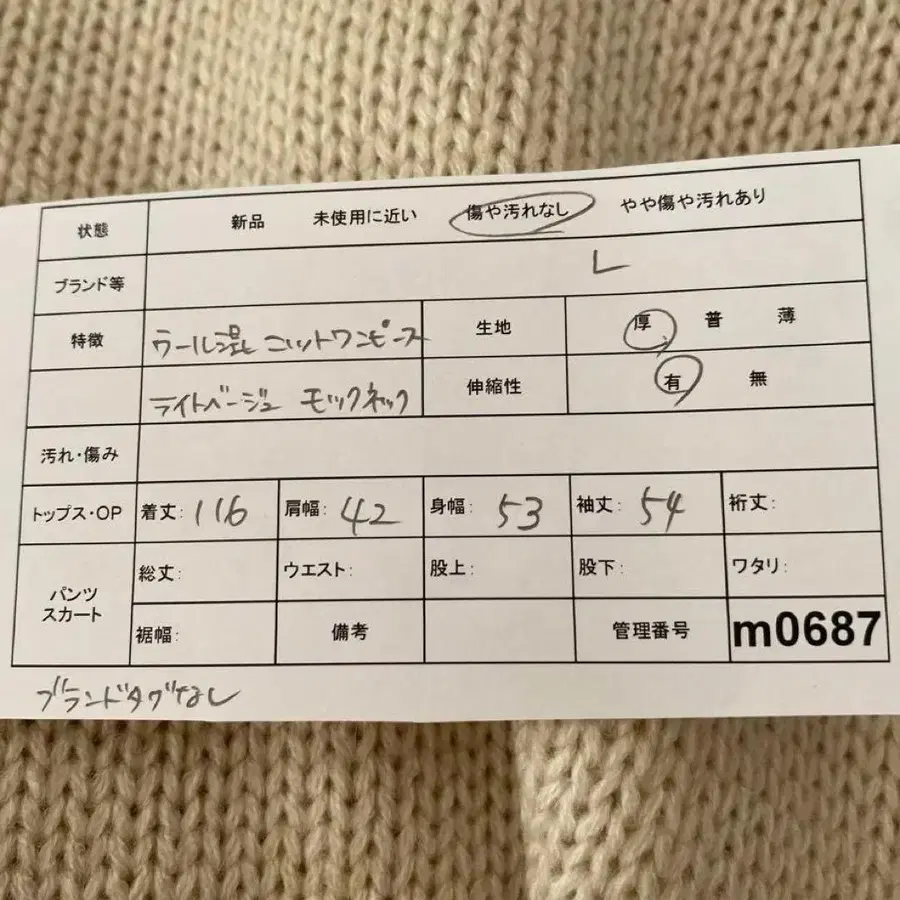 状態 新品 未使用に近い 傷や汚れなし やや傷や汚れあり
ブランド等 L
特徴 ウール混 ニットワンピース 生地 厚 普 薄
ライトベージュ モックネック 伸縮性 有 無
汚れ・傷み
トップス・OP 着丈: 116 肩幅: 42 身幅: 53 袖丈: 54 裄丈:
パンツ スカート 総丈: ウエスト: 股上: 股下: ワタリ:
裾幅: 備考 管理番号 m0687
ブランドタグなし